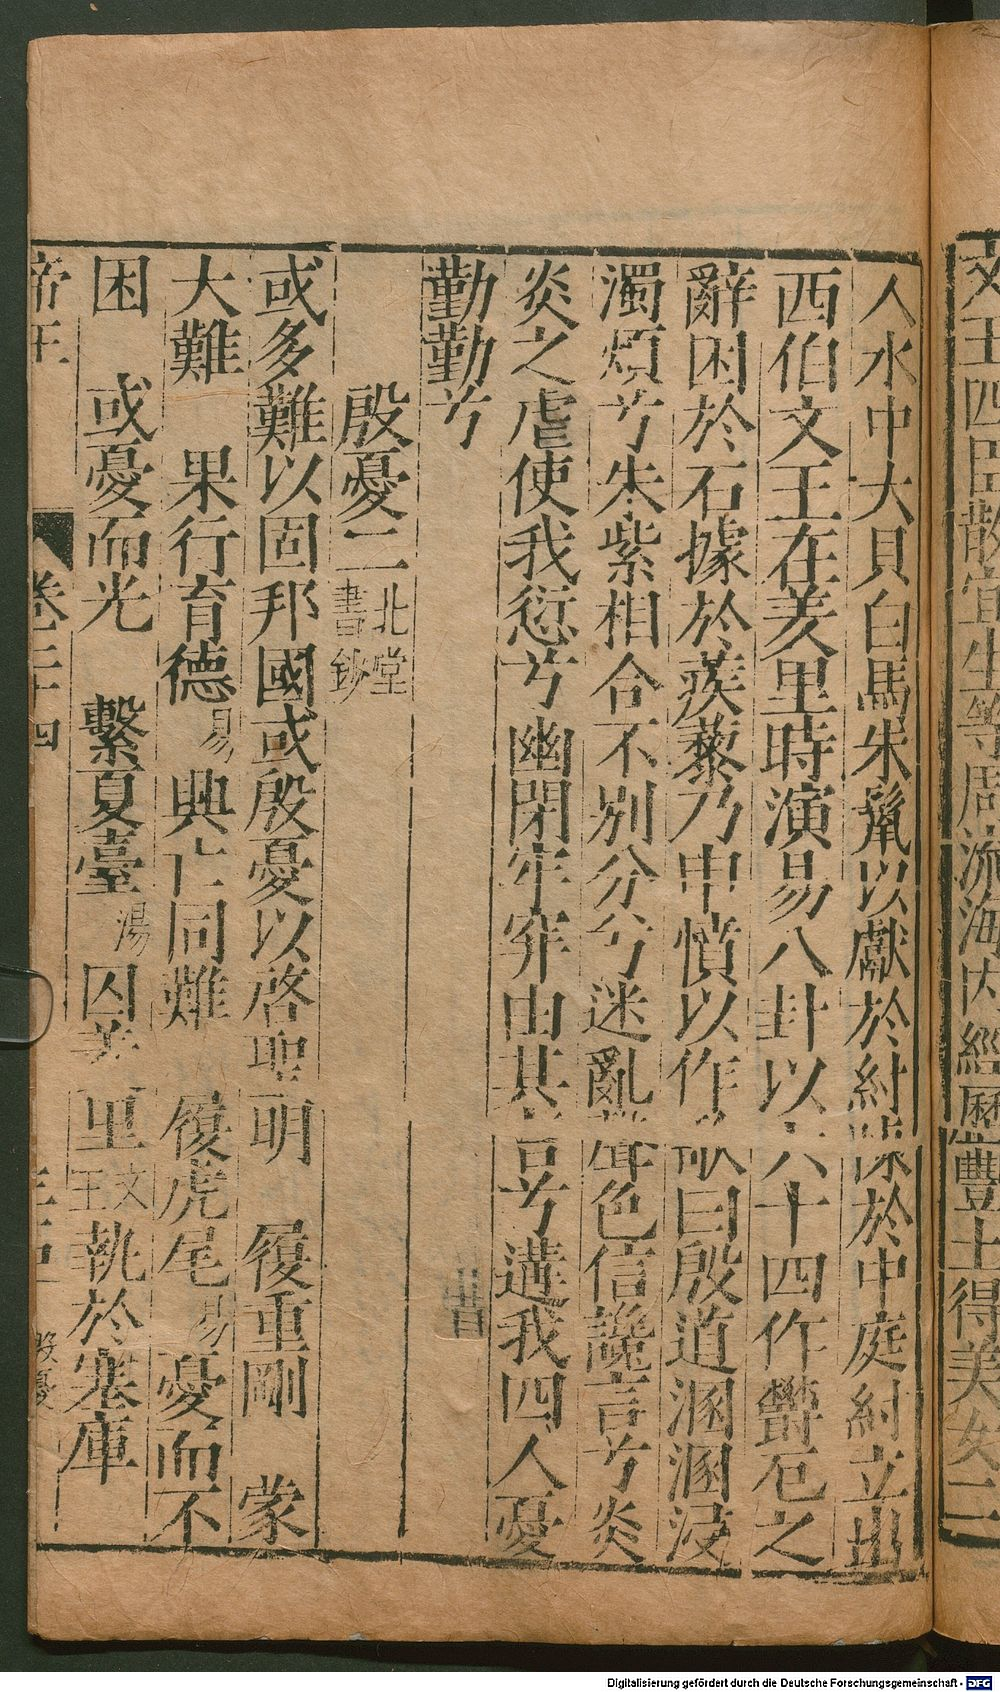 文王四臣散宜生等周流海內經歷豐土得美女二
人水中大貝白馬朱鬣以獻於紂陳於中庭紂立出
西伯文王在羑里時演易八卦以六十四作鬱厄之
辭困於石據於蒺藜乃申憤以作歌曰殷道溷溷浸
濁煩兮朱紫相合不別分兮迷亂聲色信讒言兮炎
炎之虐使我愆兮幽閉牢穽由其言兮遘我四人憂
勤勤兮
殷憂二北堂書鈔
或多難以固邦國或殷憂以啓聖明 履重剛 蒙
大難 果行育德易 興亡同難 履虎尾易 憂而不
困 或憂而光 繫夏臺湯 囚羑里文王 執於塞庫
帝王 卷三十四 殷憂
Digitalisierung gefördert durch die Deutsche Forschungsgemeinschaft - DFG